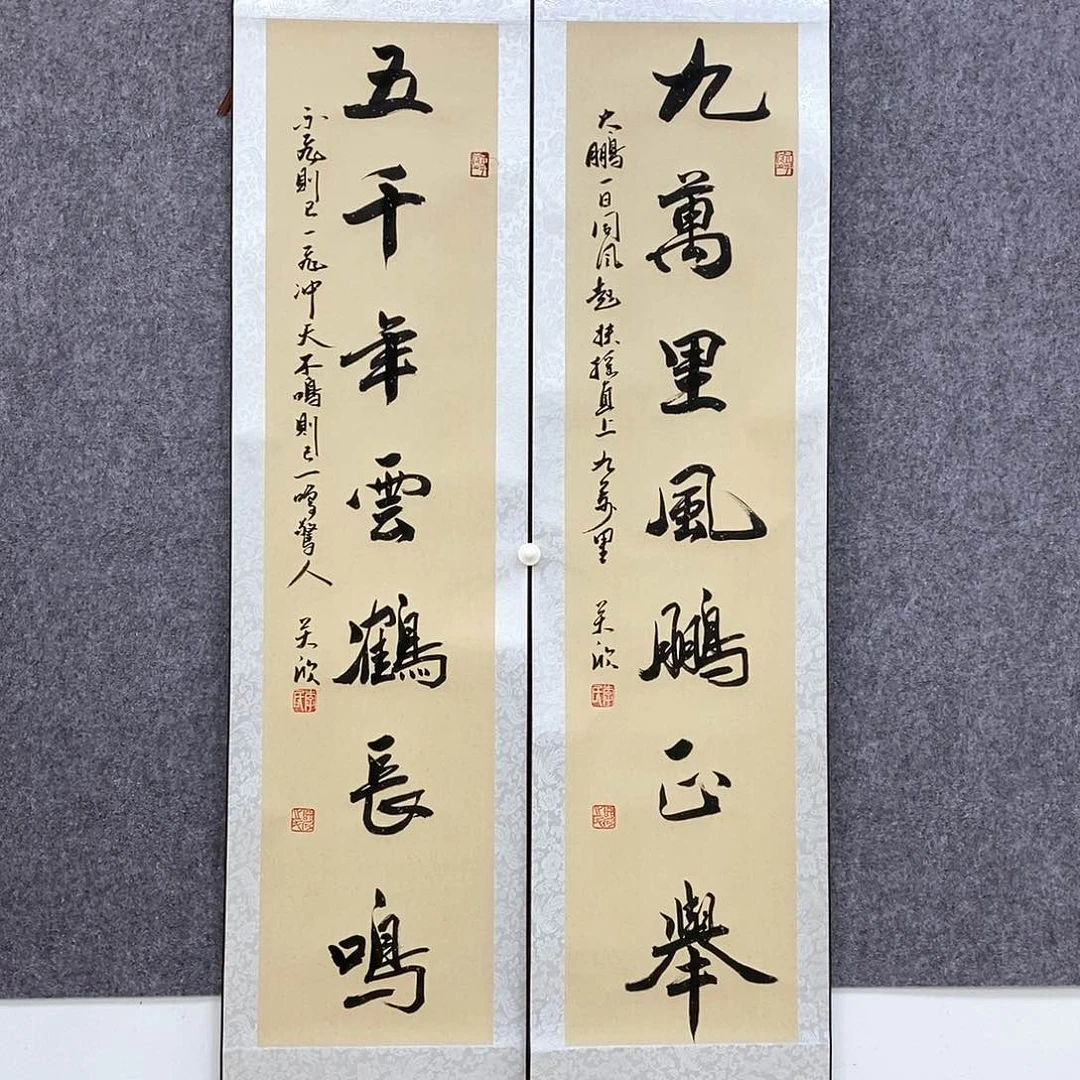 九萬里風鵬正舉
大鵬一日同風起扶摇直上九萬里
五千年雲鶴長鳴
不飛則已一飛冲天不鳴則已一鳴驚人